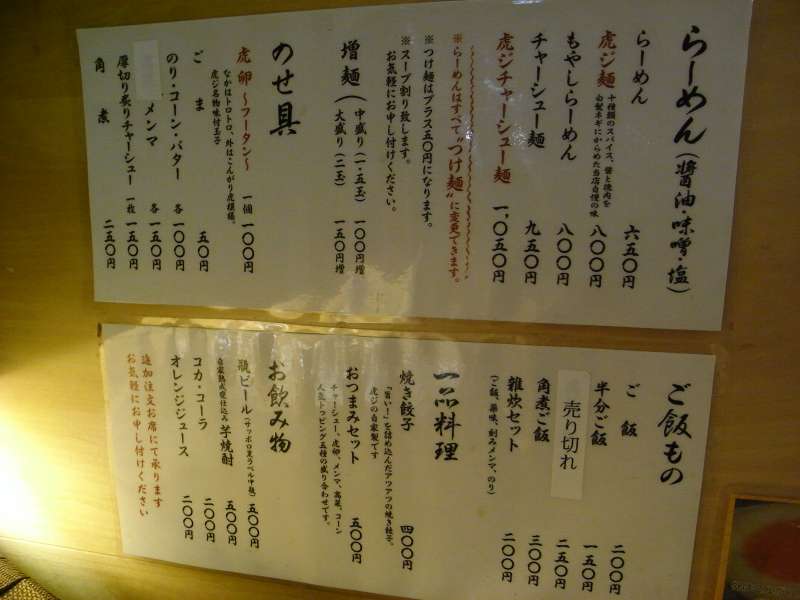 らーめん（醤油・味噌・塩）
らーめん 六五〇円
虎ジ麺 八〇〇円
十種類のスパイス、醤と挽肉を
白髪ネギにからめた当店自慢の味
もやしらーめん 八〇〇円
チャーシュー麺 九五〇円
虎ジチャーシュー麺 一,〇五〇円
※らーめんはすべて“つけ麺”に変更できます。
※つけ麺はプラス五〇円になります。
※スープ割り致します。
お気軽にお申し付けください。
増麺（中盛り（一・五玉） 一〇〇円増
大盛り（二玉） 一五〇円増
のせ具
虎卵〜フータン〜 一個 一〇〇円
なかはトロトロ、外はこんがり虎模様。
虎ジ名物味付玉子
ごま 五〇円
のり・コーン・バター 各一〇〇円
メンマ 各一五〇円
厚切り炙りチャーシュー 一枚 一五〇円
角煮 二五〇円
ご飯もの
ご飯 二〇〇円
半分ご飯 一五〇円
売り切れ 二五〇円
角煮ご飯 三〇〇円
雑炊セット 二〇〇円
（ご飯、薬味、刻みメンマ、のり）
一品料理
焼き餃子 四〇〇円
「旨い！」を詰め込んだアツアツの焼き餃子。
虎ジの自家製です
おつまみセット 五〇〇円
チャーシュー、虎卵、メンマ、高菜、コーン
人気トッピング五種の盛り合わせです。
お飲み物
瓶ビール（サッポロ黒ラベル中瓶） 五〇〇円
自家熟成甕仕込み 芋焼酎 五〇〇円
コカ・コーラ 二〇〇円
オレンジジュース 二〇〇円
追加注文お席にて承ります
お気軽にお申し付けください